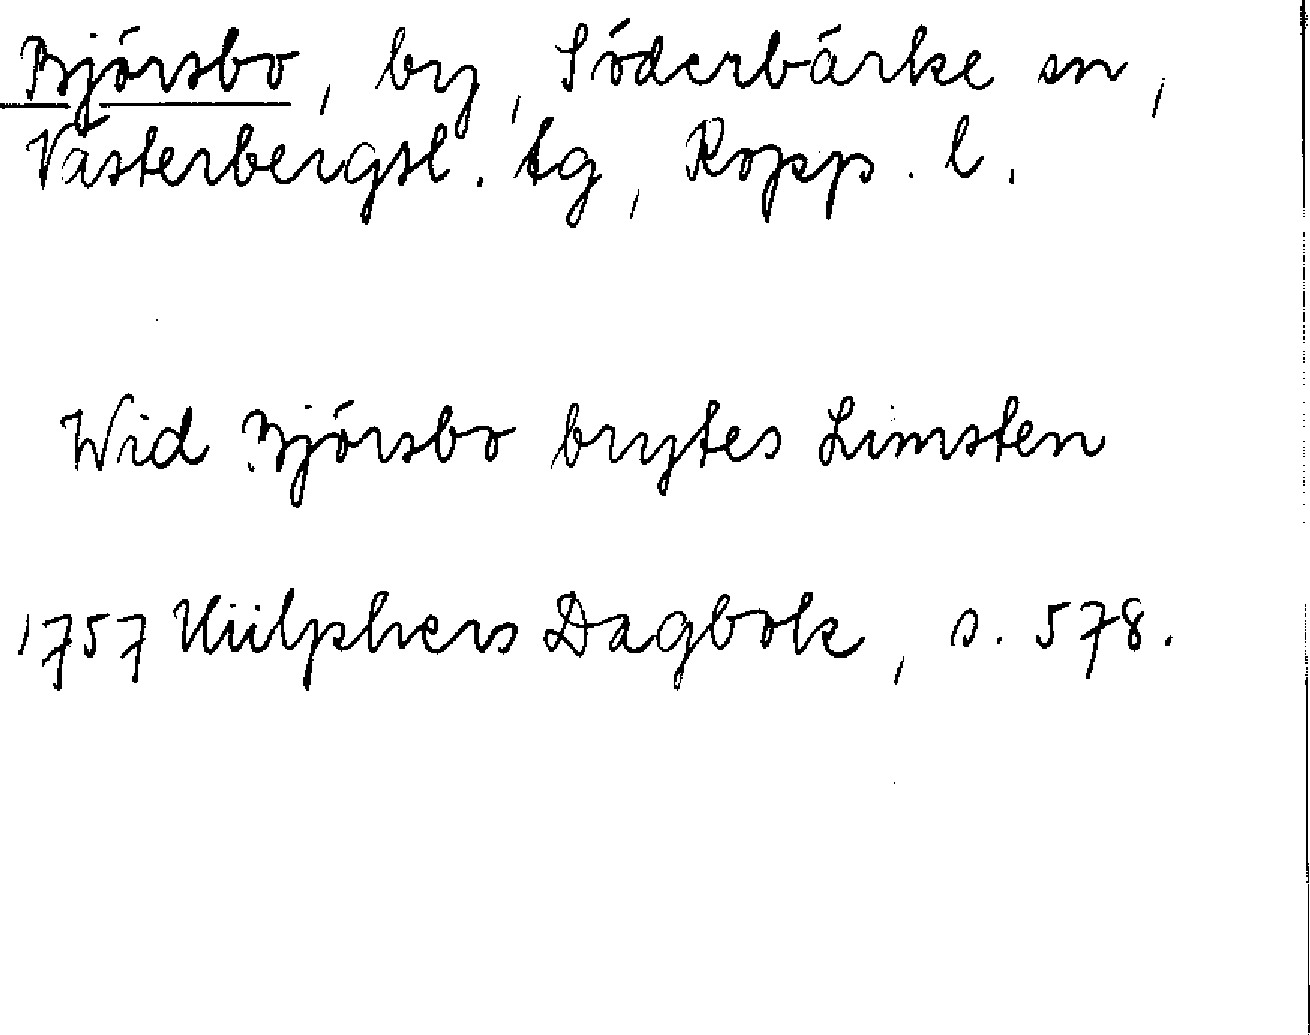 Björsbo, by, Söderbärke sn,
Västerbergsl. tg, Kopp. l.
Wid Björsbo brytes Limsten
1757 Hülphers Dagbok, s. 578.